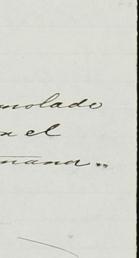 nolado
n el
mana..